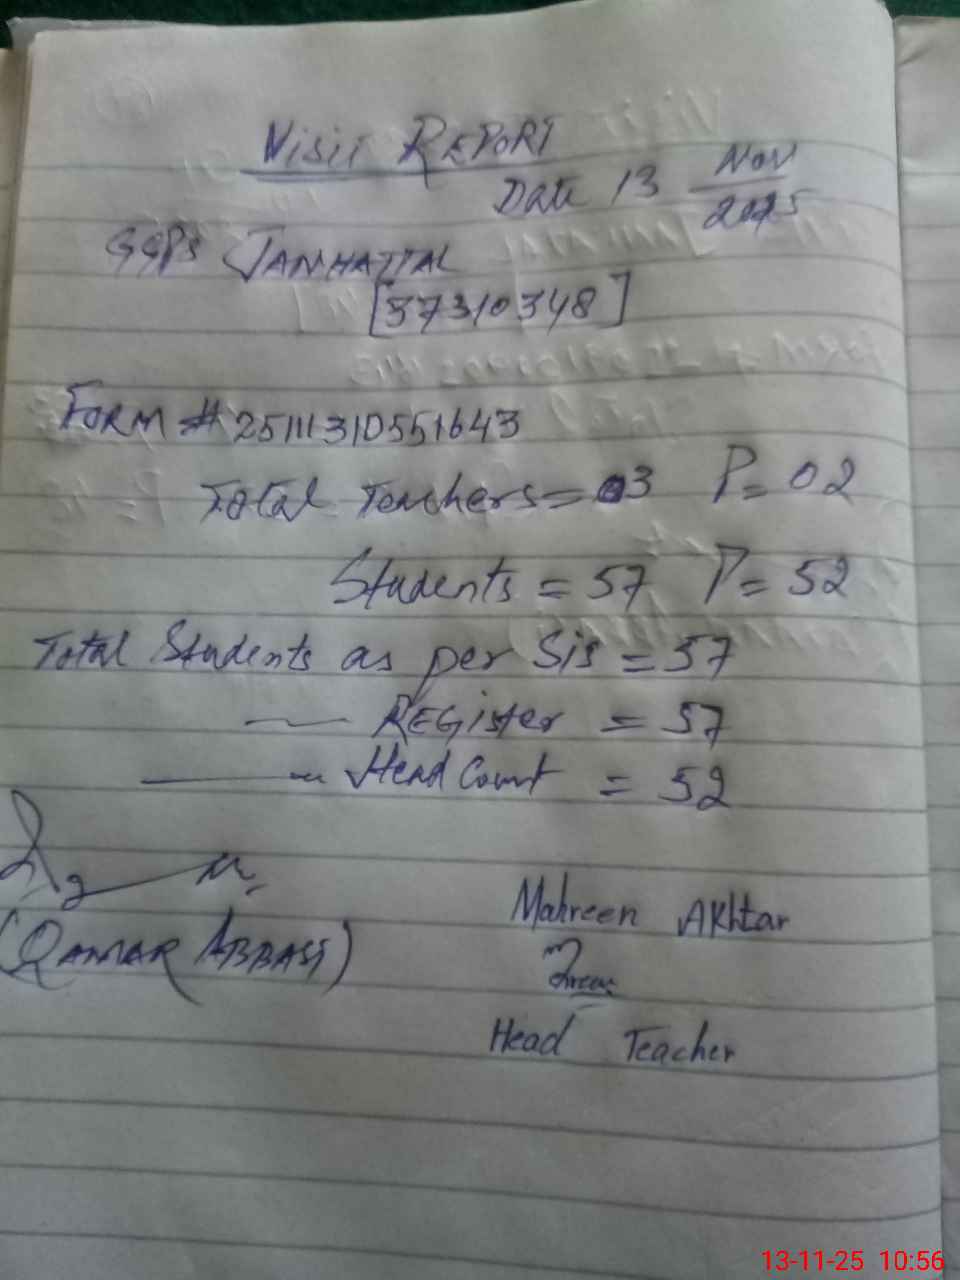 Visit REPORT
Date 13 Nov 2025
GGPS JANHATTAL
[37310348]
FORM # 25111310551643
Total Teachers = 03 P= 02
Students = 57 P= 52
Total Students as per Sis = 57
— REGister = 57
— Head Count = 52
(QAMAR ABBASI)
Mahreen Akhtar
Head Teacher
13-11-25 10:56